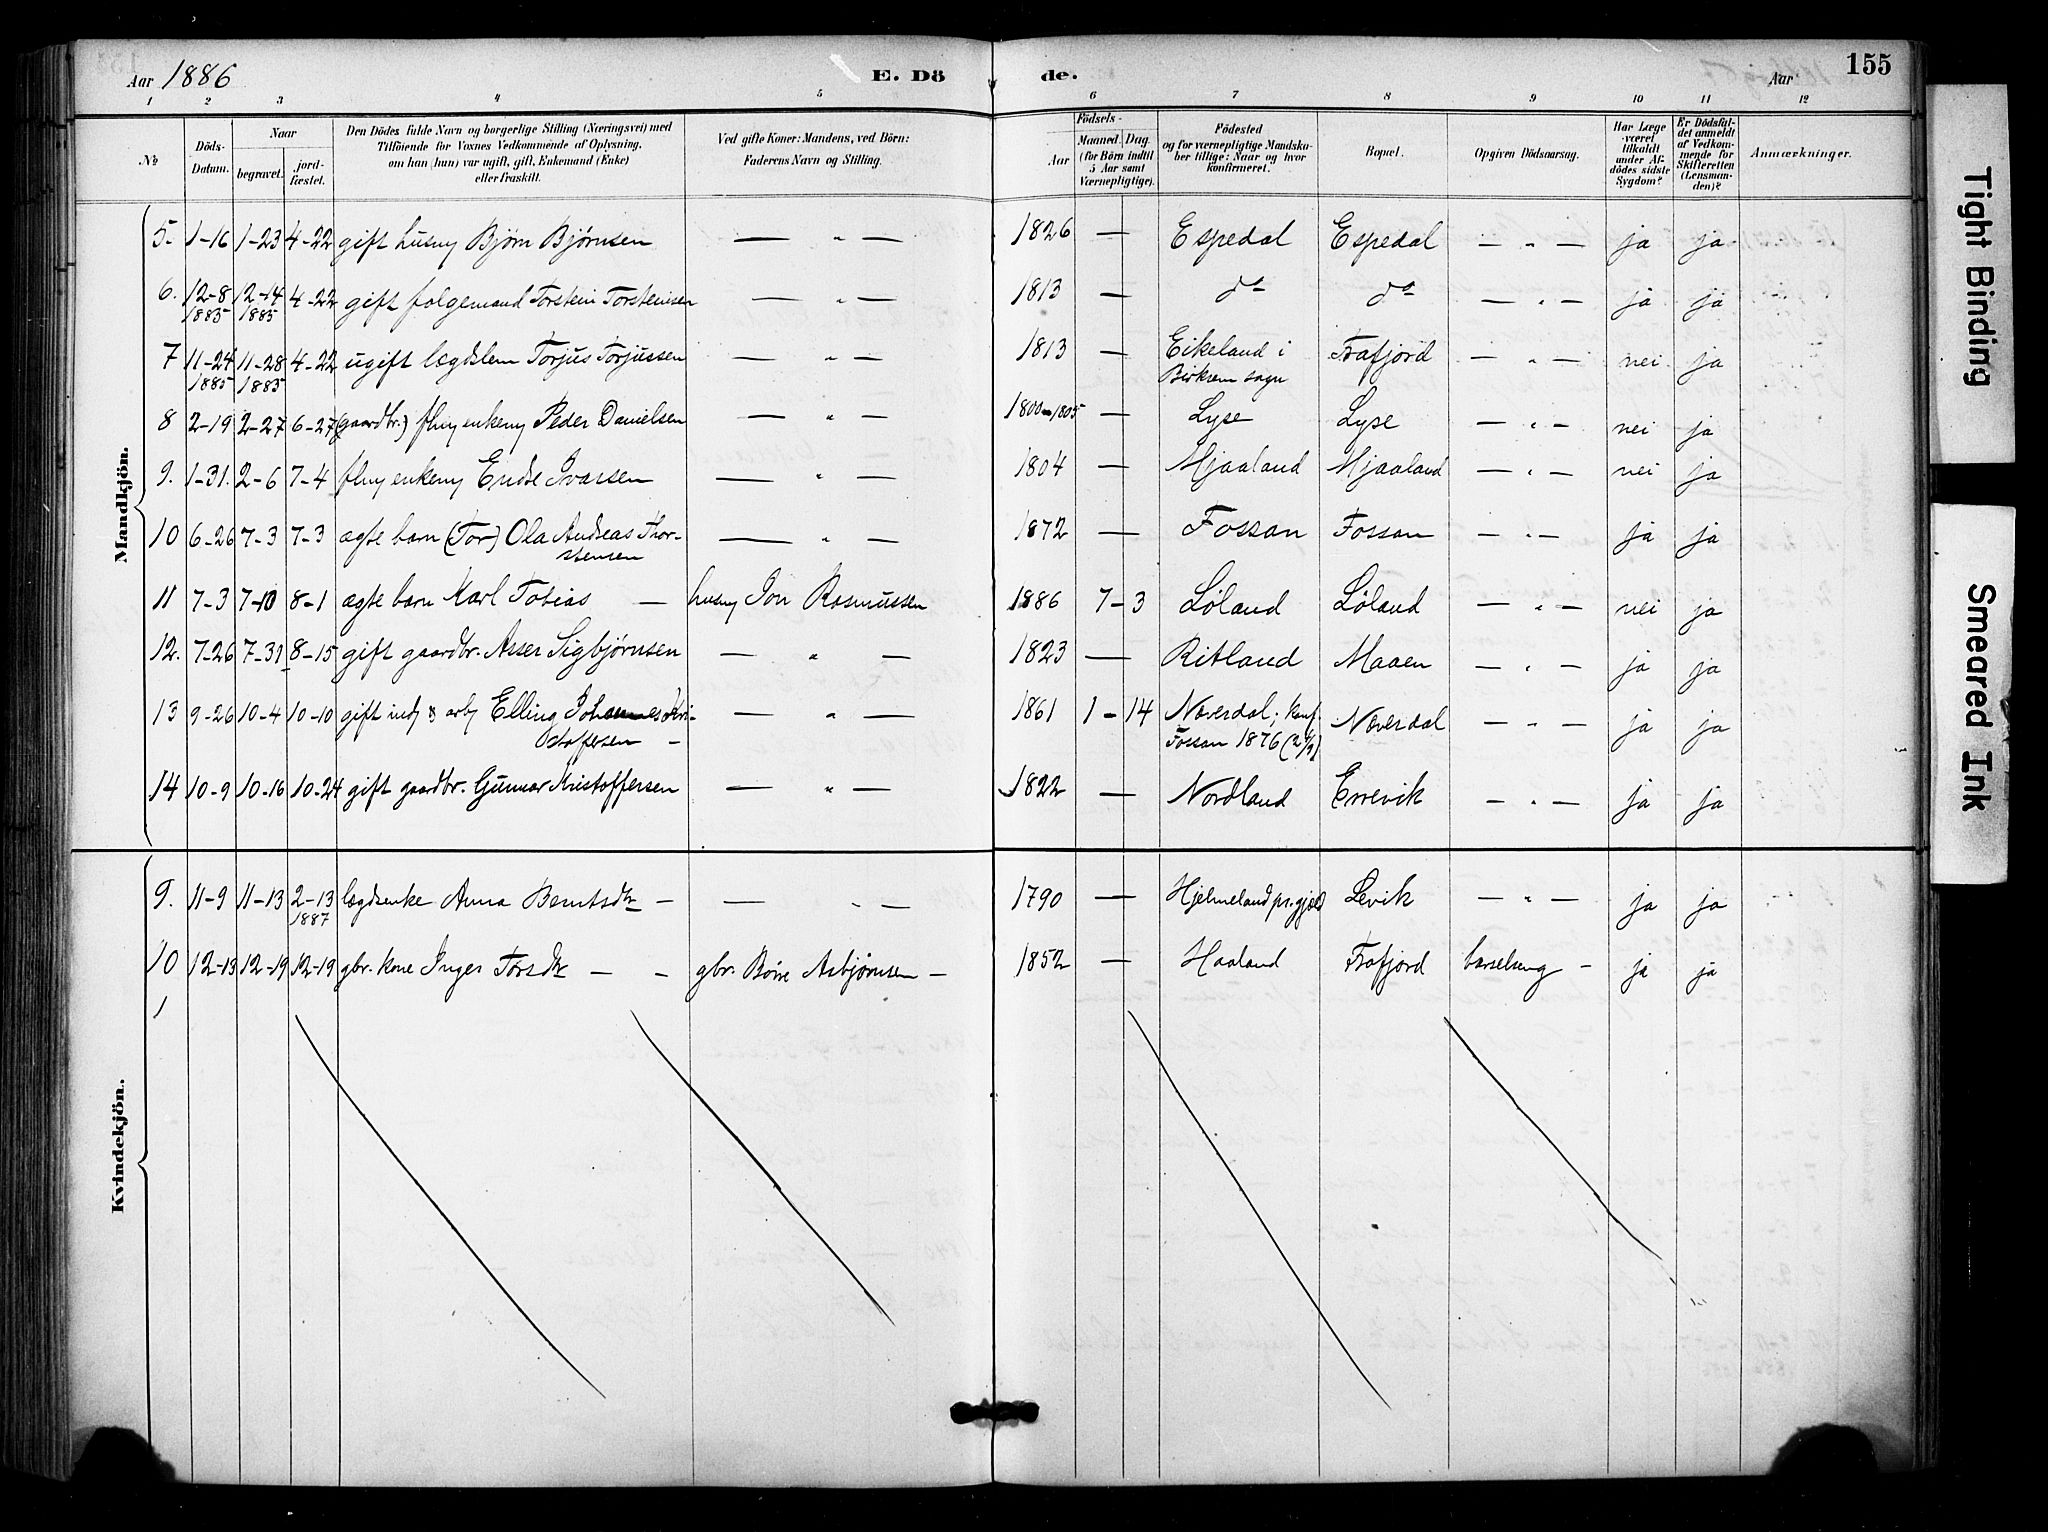 Aar 1886 E. Dö de. Aar 155
1 2 3 4 5 6 7 8 9 10 11 12
No Döds-Datum. Naar begravet. jord-fæstet. Den Dödes fulde Navn og borgerlige Stilling (Næringsvei) med Tilföiende for Voxnes Vedkommende af Oplysning, om han (hun) var ugift, gift, Enkemand (Enke) eller fraskilt. Ved gifte Koner: Mandens, ved Börn: Faderens Navn og Stilling. Födsels- Aar Maaned. Dag. (for Börn indtil 5 Aar samt Værnepligtige). Födested og for værnepligtige Mandskaber tillige: Naar og hvor konfirmeret. Bopæl. Opgiven Dödsaarsag. Har Læge været tilkaldt under Afdödes sidste Sygdom? Er Dödsfaldet anmeldt af Vedkommende for Skifteretten (Lensmanden)? Anmærkninger.
Mandkjön.
5. 1-16 1-23 4-22 gift husmd Bjørn Bjørnsen — " — 1826 — Espedal Espedal — " — ja ja
6. 12-8 1885 12-14 1885 4-22 gift følgemand Torstein Torsteinsen — " — 1813 — do do — " — ja ja
7 11-24 1885 11-28 1885 4-22 ugift lægdslem Torjus Torjussen — " — 1813 — Eikeland i Birkrem sogn Frafjord — " — nei ja
8 2-19 2-27 6-27 (gaardbr.) Peder Danielsen — " — 1800-1805 — Lyse Lyse — " — nei ja
9. 1-31. 2-6 7-4 Endre Ivarsen — " — 1804 — Mjaaland Mjaaland — " — nei ja
10 6-26 7-3 7-3 ægte barn (Tor) Ola Andreas Thorstensen — " — 1872 — Fossan Fossan — " — ja ja
11 7-3 7-10 8-1 ægte barn Karl Tobias — husmd Jon Rasmussen 1886 7-3 Løland Løland — " — nei ja
12. 7-26 7-31 8-15 gift gaardbr. Asser Sigbjørnsen — " — 1823 — Ritland Maaen — " — ja ja
13 9-26 10-4 10-10 gift Elling Johannes Kristoffersen — — " — 1861 1-14 Næverdal; konf. Fossan 1876 (2/9) Næverdal — " — ja ja
14 10-9 10-16 10-24 gift gaardbr. Gunnar Kristoffersen — " — 1822 — Nordland Errevik — " — ja ja
Kvindekjön.
9. 11-9 11-13 2-13 1887 lægdsenke Anna Berntsdtr — — " — 1790 — Hjelmeland pr.gjeld Levik — " — ja ja
10 12-13 12-19 12-19 gbr. kone Inger Torsdtr — — gbr. Børe Asbjørnsen — 1852 — Haaland Frafjord barselseng — ja ja
Tight Binding
Smeared Ink